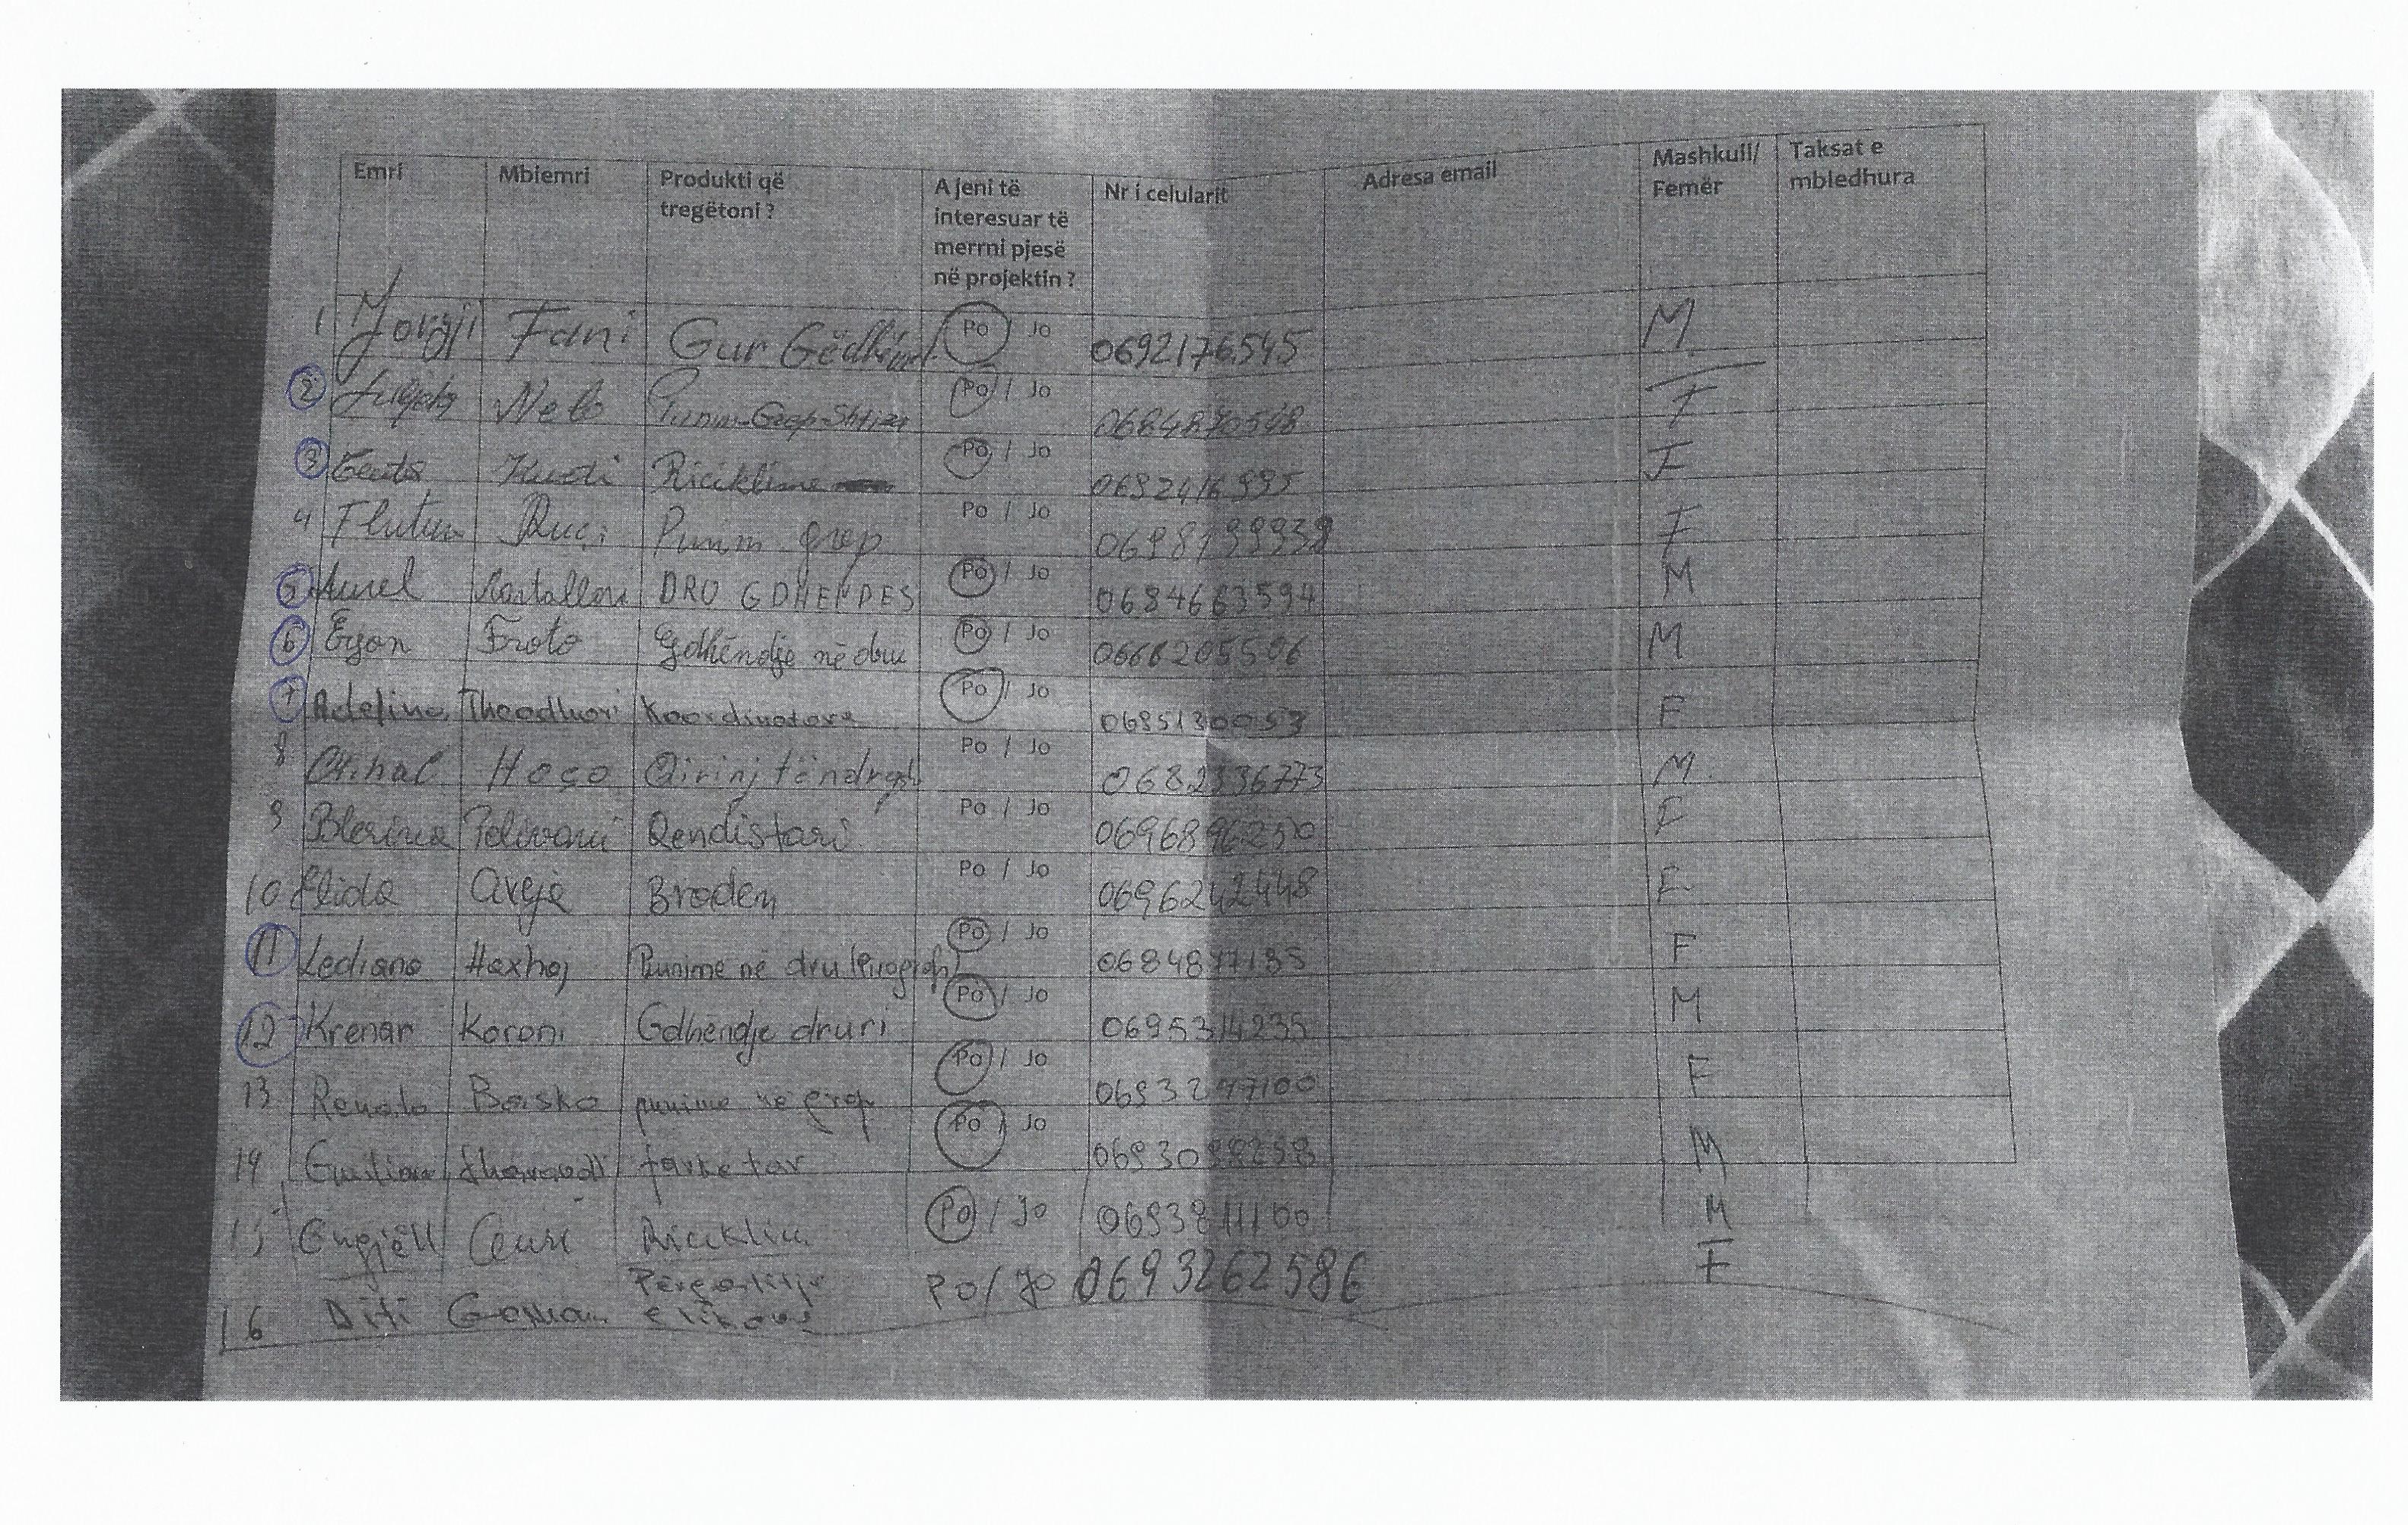 Emri Mbiemri Produkti që tregëtoni ? A jeni të interesuar të merrni pjesë në projektin ? Nr i celularit Adresa email Mashkull/ Femër Taksat e mbledhura
1 Jorgji Fani Gur Gëdhënd. Po / Jo 0692176545 M
2 Neto Punim-Grep-Shtiza Po / Jo F
3 Riciklime Po / Jo F
4 Flutura Ruçi Punim grep Po / Jo F
5 Aurel Kastallori DRU GDHENDES Po / Jo 0684663594 M
6 Erjon Froto Gdhëndje në dru Po / Jo M
7 Adelina Theodhori Koordinatore Po / Jo F
8 Mihal Hoço Qirinj të ndryshëm Po / Jo 0682336773 M
9 Blerina Pelivani Qendistari Po / Jo 0696896250 F
10 Elida Brodery Po / Jo 0696242448 F
11 Lediana Hoxhaj Punime në dru (Pirografi) Po / Jo F
12 Krenar Koroni Gdhendje druri Po / Jo 0695314235 M
13 Renata Basko punime me grep Po / Jo F
14 farketar Po / Jo M
15 Engjëll Ceuri Riciklim Po / Jo 0693811100 M
16 Diti Po / Jo 0693262586 F